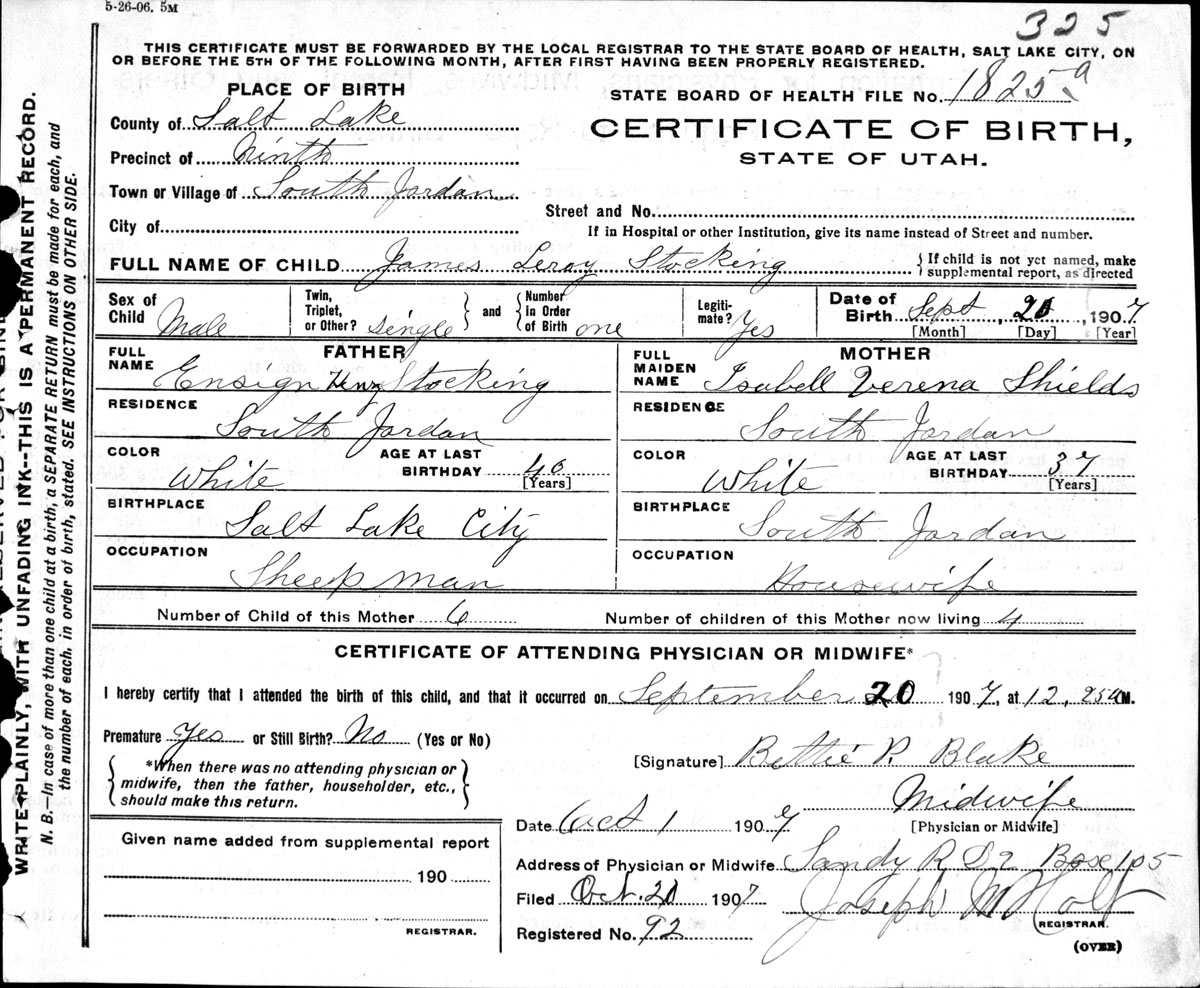 5-26-06. 5M
325
THIS CERTIFICATE MUST BE FORWARDED BY THE LOCAL REGISTRAR TO THE STATE BOARD OF HEALTH, SALT LAKE CITY, ON
OR BEFORE THE 5TH OF THE FOLLOWING MONTH, AFTER FIRST HAVING BEEN PROPERLY REGISTERED.
PLACE OF BIRTH
STATE BOARD OF HEALTH FILE No. 1825 a
County of Salt Lake
CERTIFICATE OF BIRTH,
Precinct of Ninth
STATE OF UTAH.
Town or Village of South Jordan
Street and No.
City of
If in Hospital or other Institution, give its name instead of Street and number.
FULL NAME OF CHILD James Leroy Stocking
{ If child is not yet named, make
supplemental report, as directed
Sex of Child Male
Twin, Triplet, or Other? single } and { Number in Order of Birth one
Legiti-mate? Yes
Date of Birth Sept, 20, 1907
[Month] [Day] [Year]
FATHER
FULL NAME Ensign Henry Stocking
RESIDENCE South Jordan
COLOR White
AGE AT LAST BIRTHDAY 40 [Years]
BIRTHPLACE Salt Lake City
OCCUPATION Sheep man
MOTHER
FULL MAIDEN NAME Isabell Verena Shields
RESIDENCE South Jordan
COLOR White
AGE AT LAST BIRTHDAY 37 [Years]
BIRTHPLACE South Jordan
OCCUPATION Housewife
Number of Child of this Mother 6
Number of children of this Mother now living 4
CERTIFICATE OF ATTENDING PHYSICIAN OR MIDWIFE*
I hereby certify that I attended the birth of this child, and that it occurred on September 20 1907, at 12, 25 M.
Premature Yes or Still Birth? No (Yes or No)
*When there was no attending physician or
midwife, then the father, householder, etc.,
should make this return.
[Signature] Bettie P. Blake
Midwife
[Physician or Midwife]
Date Oct 1 1907
Address of Physician or Midwife Sandy R D 2 Box 105
Filed Oct. 20 1907
Joseph M Holt
REGISTRAR.
Registered No. 92
(OVER)
Given name added from supplemental report
190
REGISTRAR.
WRITE PLAINLY, WITH UNFADING INK--THIS IS A PERMANENT RECORD.
N. B.—In case of more than one child at a birth, a SEPARATE RETURN must be made for each, and
the number of each. in order of birth, stated. SEE INSTRUCTIONS ON OTHER SIDE.